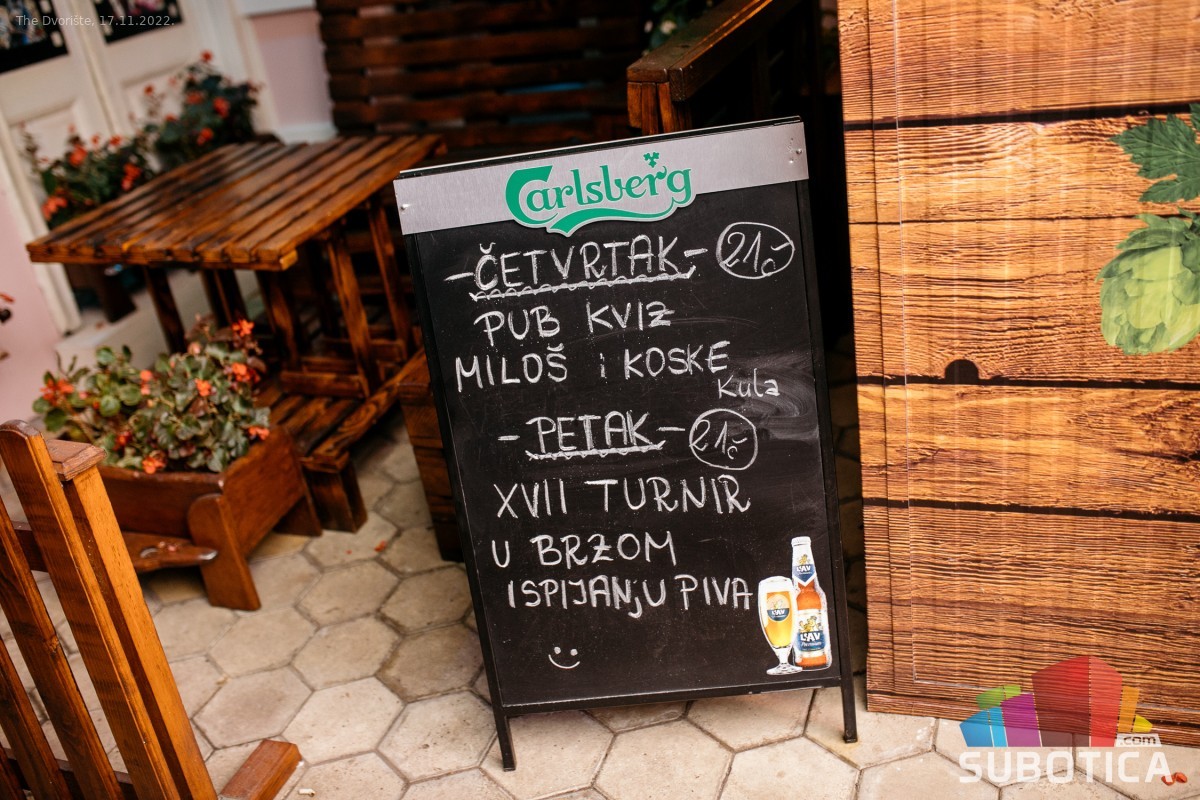 The Dvorište, 17.11.2022.
Carlsberg
-ČETVRTAK- 21č
PUB KVIZ
MILOŠ i KOSKE
Kula
-PETAK- 21č
XVII TURNIR
U BRZOM
ISPIJANjU PIVA
LAV
LAV
LAV
Premium
.com
SUBOTICA